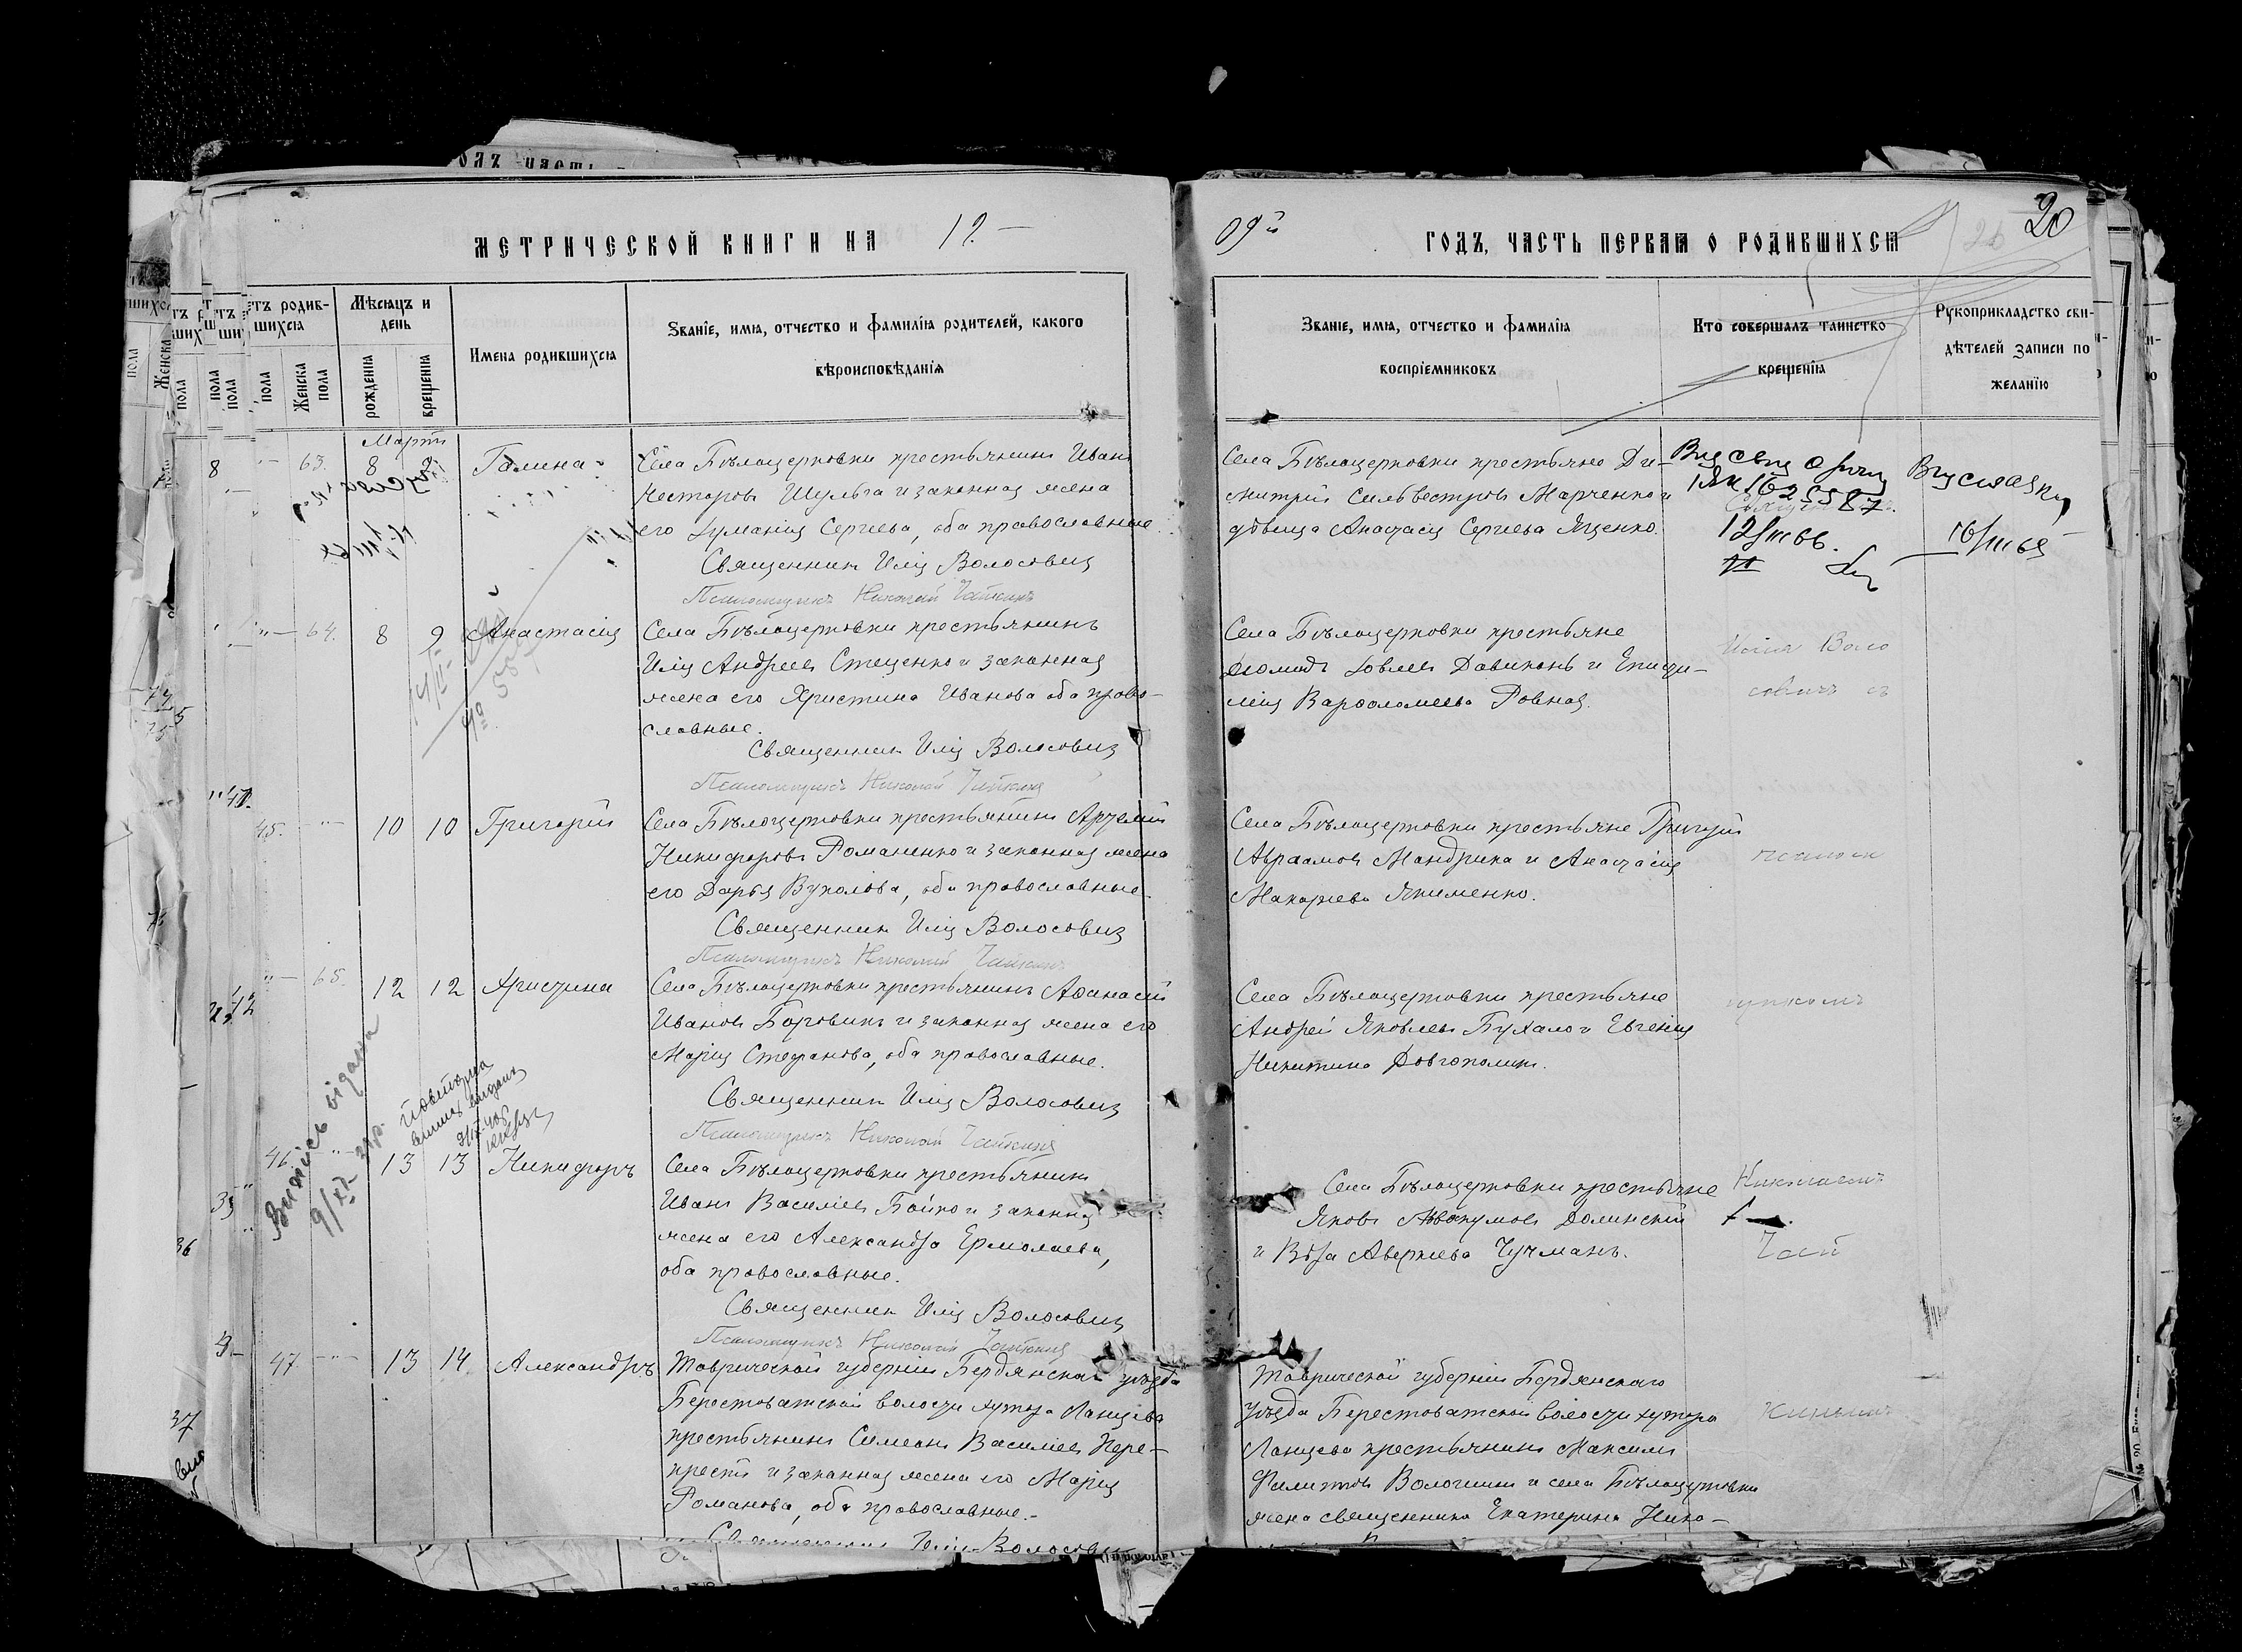 МЕТРИЧЕСКОЙ КНИГИ НА 19
09й ГОДЪ, ЧАСТЬ ПЕРВАЯ О РОДИВШИХСЯ
20
Мѣсяцъ и день
рожденія
крещенія
Женска пола
Имена родившихся
Званіе, имя, отчество и фамилія родителей, какого
вѣроисповѣданія
Званіе, имя, отчество и фамилія
воспріемниковъ
Кто совершалъ таинство
крещенія
Рукоприкладство сви-
дѣтелей записи по
желанію
Мартъ
63. 8 Галина
Села Бѣлоцерковки крестьянинъ Иванъ
Несторовъ Шульга и законная жена
его Домникія Сергіева, оба православные
Священникъ Илія Волосовичъ
Псаломщикъ Николай Чайкинъ
Села Бѣлоцерковки крестьяне Ди-
митрій Сильвестровъ Марченко и
дѣвица Анастасія Сергіева Яценко.
64. 8 9 Анастасія
Села Бѣлоцерковки крестьянинъ
Илія Андреевъ Стеценко и законная
жена его Христина Иванова оба право-
славные.
Священникъ Илія Волосовичъ
Псаломщикъ Николай Чайкинъ
Села Бѣлоцерковки крестьяне
Диомидъ Іовлевъ и Епифи-
мія Варфоломеева Ровная.
Илія Воло
совичъ съ
45. 10 10 Григорій
Села Бѣлоцерковки крестьянинъ Артемій
Никифоровъ Романенко и законная жена
его Дарья Вуколова, оба православные.
Священникъ Илія Волосовичъ
Псаломщикъ Николай Чайкинъ
Села Бѣлоцерковки крестьяне Григорій
Авраамовъ Мандрика и Анастасія
Макарьева Якименко.
псалом
65. 12 12 Христина
Села Бѣлоцерковки крестьянинъ Аѳанасій
Ивановъ Боровикъ и законная жена его
Марія Стефанова, оба православные.
Священникъ Илія Волосовичъ
Псаломщикъ Николай Чайкинъ
Села Бѣлоцерковки крестьяне
Андрей Яковлевъ Бухало и Евгенія
Никитина Довгополая.
щикомъ
46. 13 13 Никифоръ
Села Бѣлоцерковки крестьянинъ
Иванъ Василіевъ Бойко и законная
жена его Александра Ермолаева,
оба православные.
Священникъ Илія Волосовичъ
Псаломщикъ Николай Чайкинъ
Села Бѣлоцерковки крестьяне
Яковъ Аввакумовъ Долинскій
и Вѣра Аверкіева Чучманъ.
Николаемъ
Чай
47. 13 14. Александръ
Таврической губерніи Бердянскаго уѣзда
Берестоватской волости хутора Ланцева
крестьянинъ Симеонъ Василіевъ Пере-
крестъ и законная жена его Марія
Романова, оба православные.
Священникъ Илія Волосовичъ
Таврической губерніи Бердянскаго
уѣзда Берестоватской волости хутора
Ланцева крестьянинъ Максимъ
Филиповъ и села Бѣлоцерковки
жена священника Екатерина Нико-
кинымъ